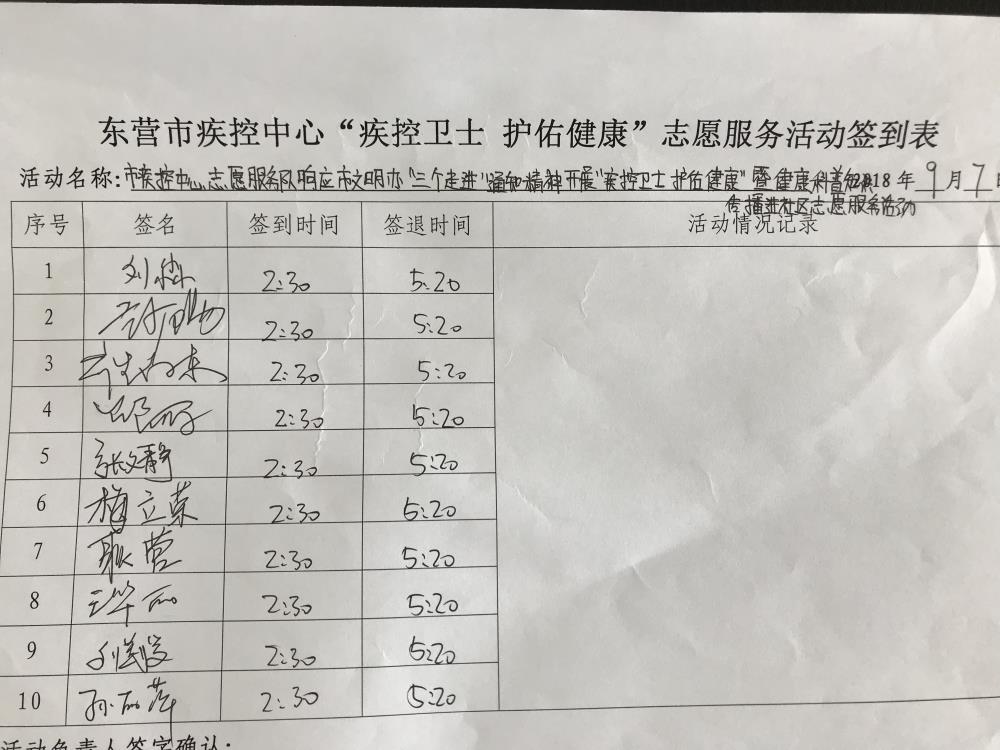 东营市疾控中心“疾控卫士 护佑健康”志愿服务活动签到表
活动名称:市疾控中心志愿服务队响应市文明办“三个走进”通知精神开展“疾控卫士护佑健康”暨健康科普知识 2018年9月7日
传播进社区志愿服务活动
序号 签名 签到时间 签退时间 活动情况记录
1 刘 2:30 5:20
2 2:30 5:20
3 2:30 5:20
4 2:30 5:20
5 张文静 2:30 5:20
6 梅立荣 2:30 5:20
7 耿营 2:30 5:20
8 王华丽 2:30 5:20
9 刘 2:30 5:20
10 孙丽萍 2:30 5:20
活动负责人签字确认: